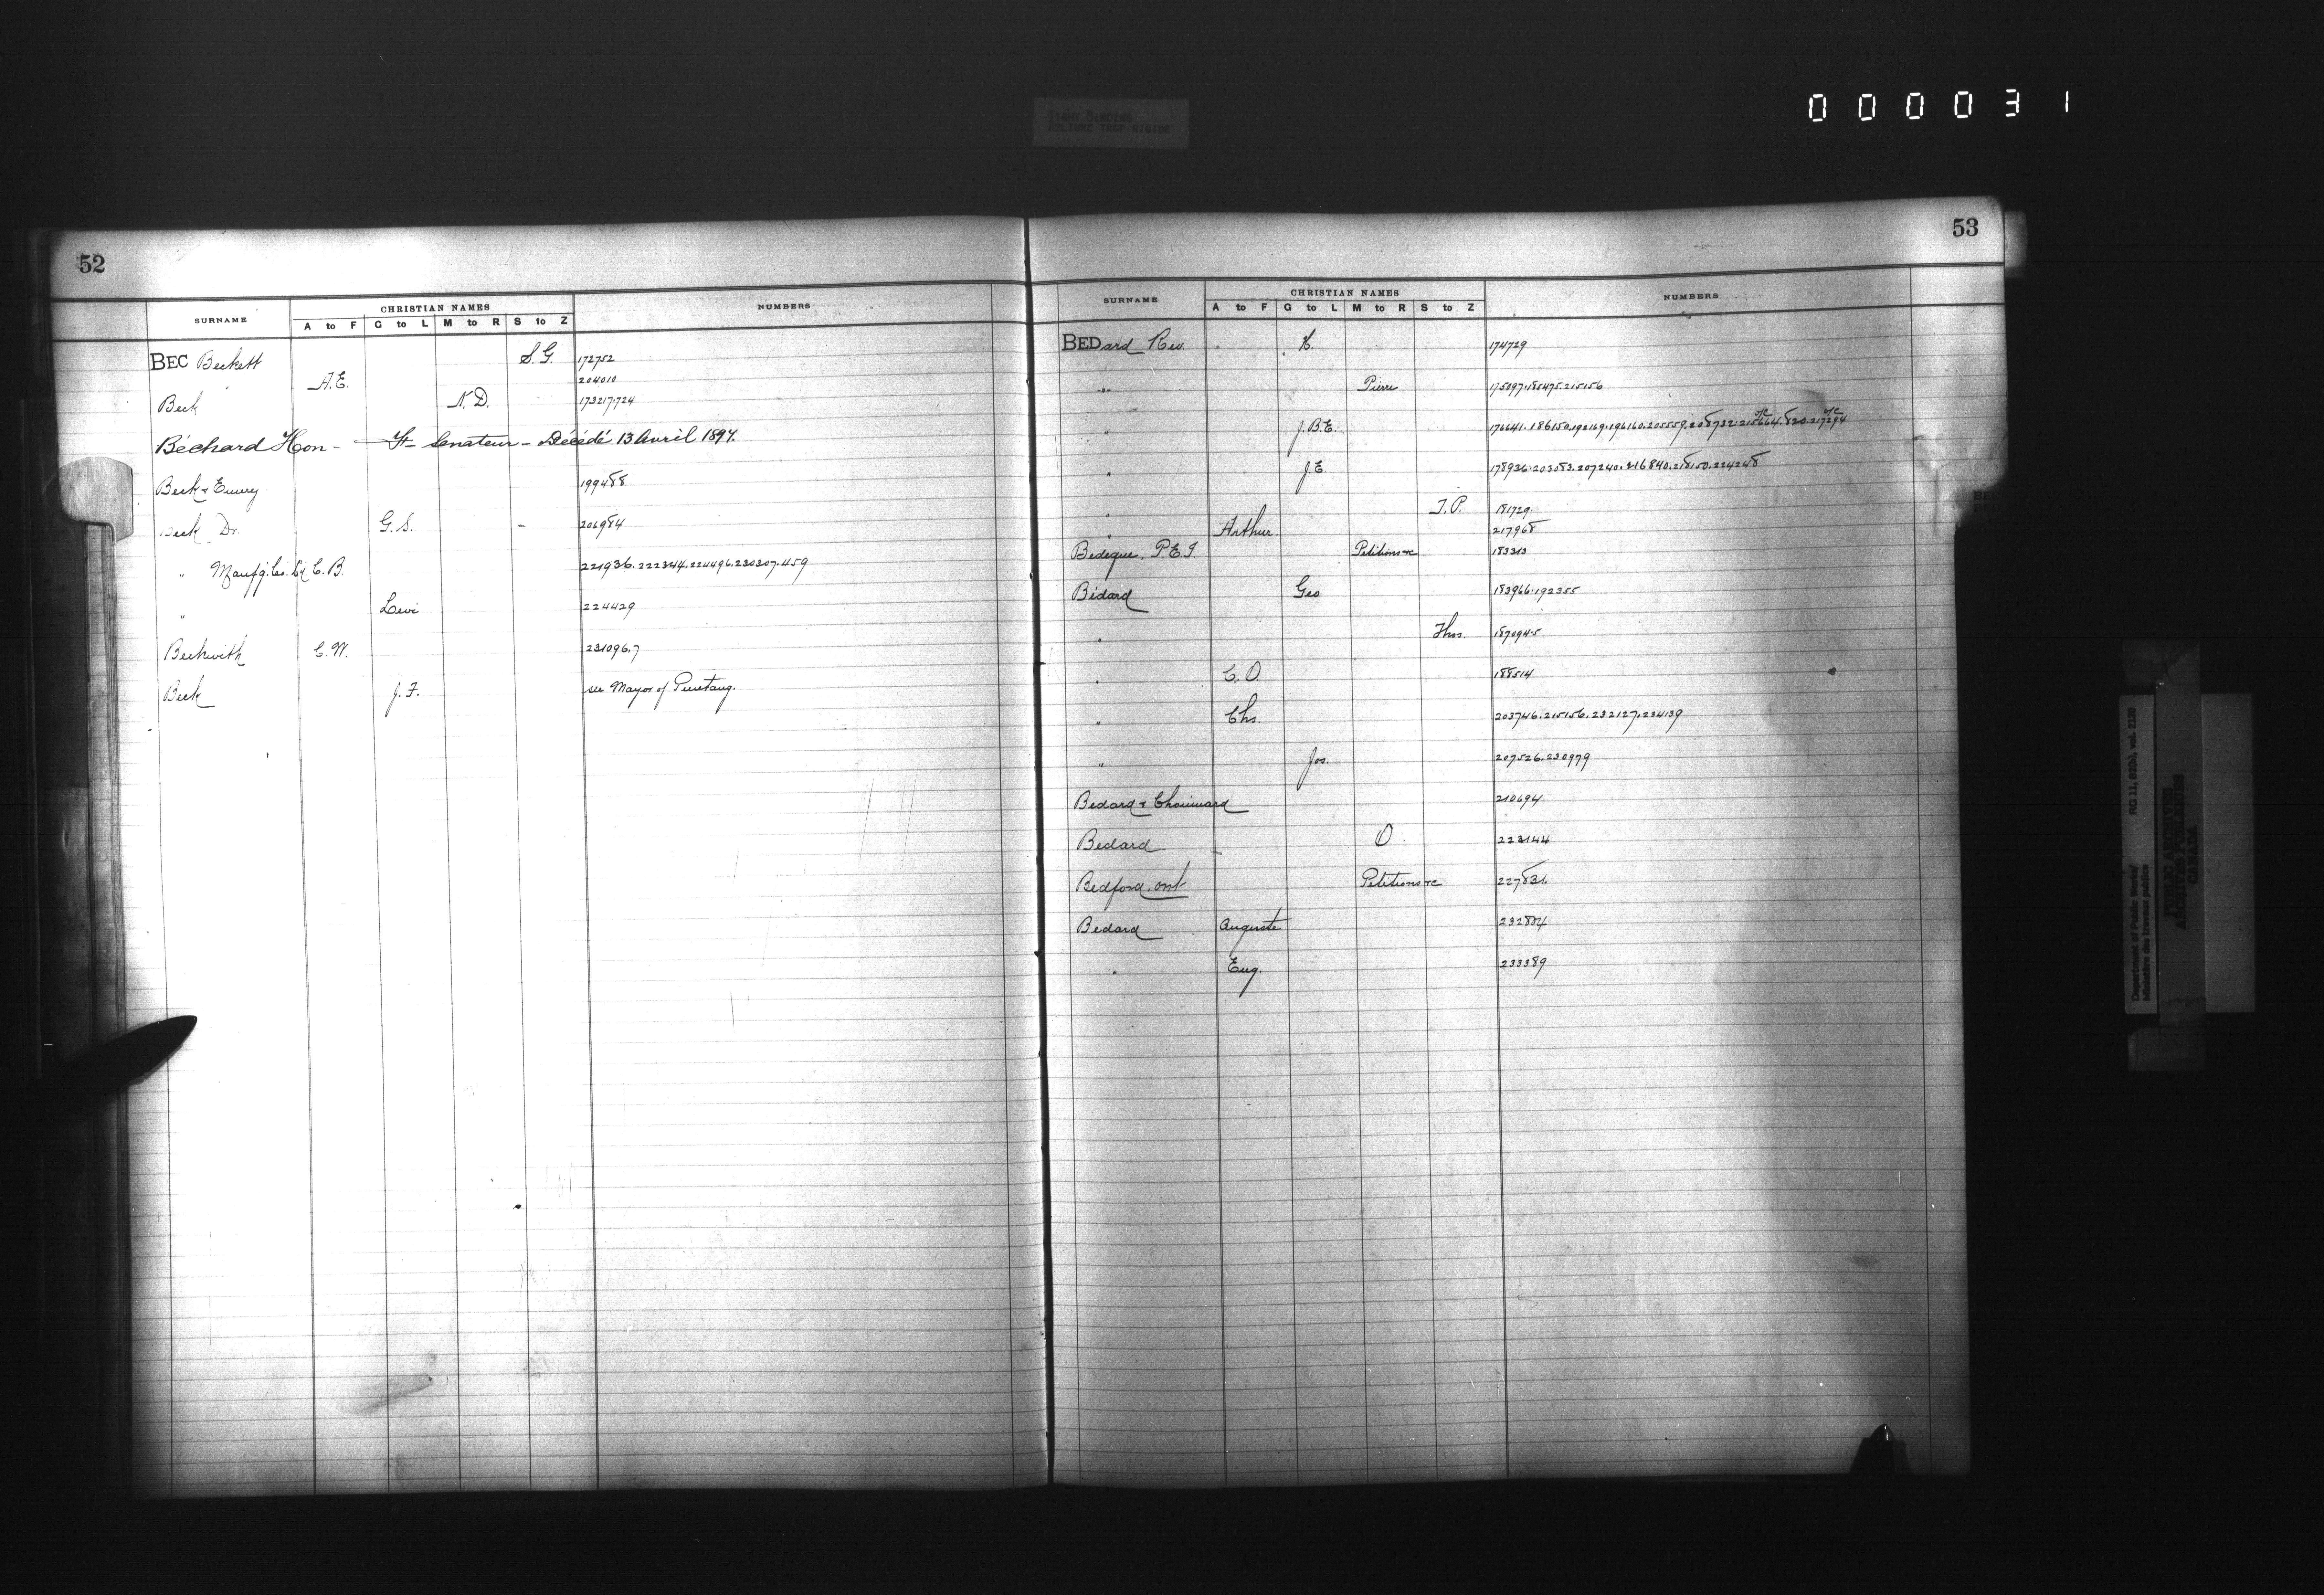 000031
TIGHT BINDING
RELIURE TROP RIGIDE
52
SURNAME CHRISTIAN NAMES NUMBERS
A to F G to L M to R S to Z
BEC Beckett S. G. 172752
" A. E. 204010
Beck N. D. 173217.724
Béchard Hon - Senateur - Décédé 13 Avril 1897.
Beck & Emery 199488
Beck Dr. G. S. 206984
" Manufg. Co. C. B. 221936.222344.224496.230307.459
" Levi 224429
Beckwith C. W. 231096.7
Beck J. F. see Mayor of Penetang.
53
SURNAME CHRISTIAN NAMES NUMBERS
A to F G to L M to R S to Z
BEDard Rev. K. 174729
" Pierre 175097.185475.215156
" J. B. E. 176641.186150.192169.196160.205559.208732.215664.820.217294
" J. E. 178936.203083.207240.216840.218150.224248
" T. P. 181729.
" Arthur. 217968
Bedeque, P. E. I. Petitions &c 183313
Bédard Geo 183966.192355
" Thos. 187094.5
" C. O. 188514
" Chs. 203746.215156.232127.234139
" Jos. 207526.230979
Bedard & Chouinard 210694
Bedard O. 223144
Bedford, Ont Petitions &c 227831.
Bedard Auguste 232804
" Eug. 233389
Department of Public Works/ RG 11, B2(b), vol. 2120
Ministère des travaux publics
PUBLIC ARCHIVES
ARCHIVES PUBLIQUES
CANADA